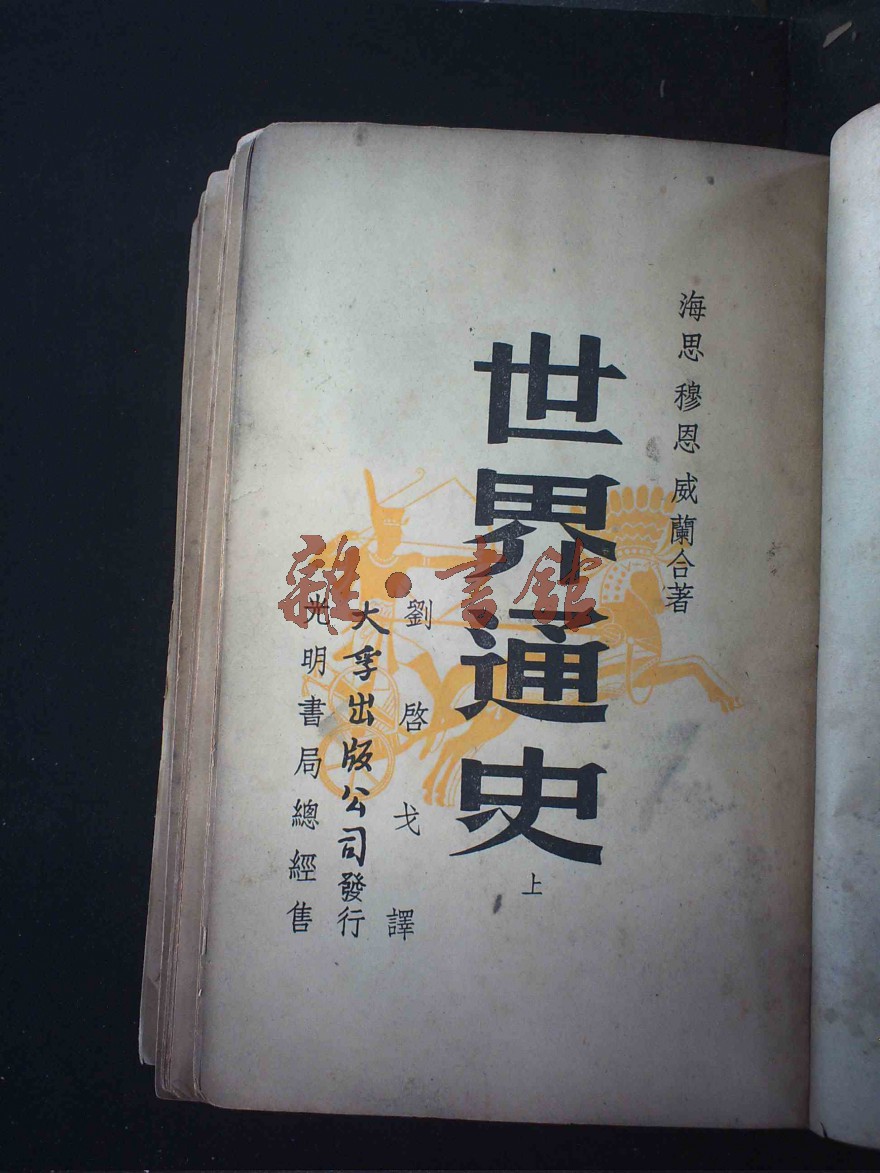 海思 穆恩 威蘭合著
世界通史
上
劉啓戈譯
大孚出版公司發行
光明書局總經售
雜·書館